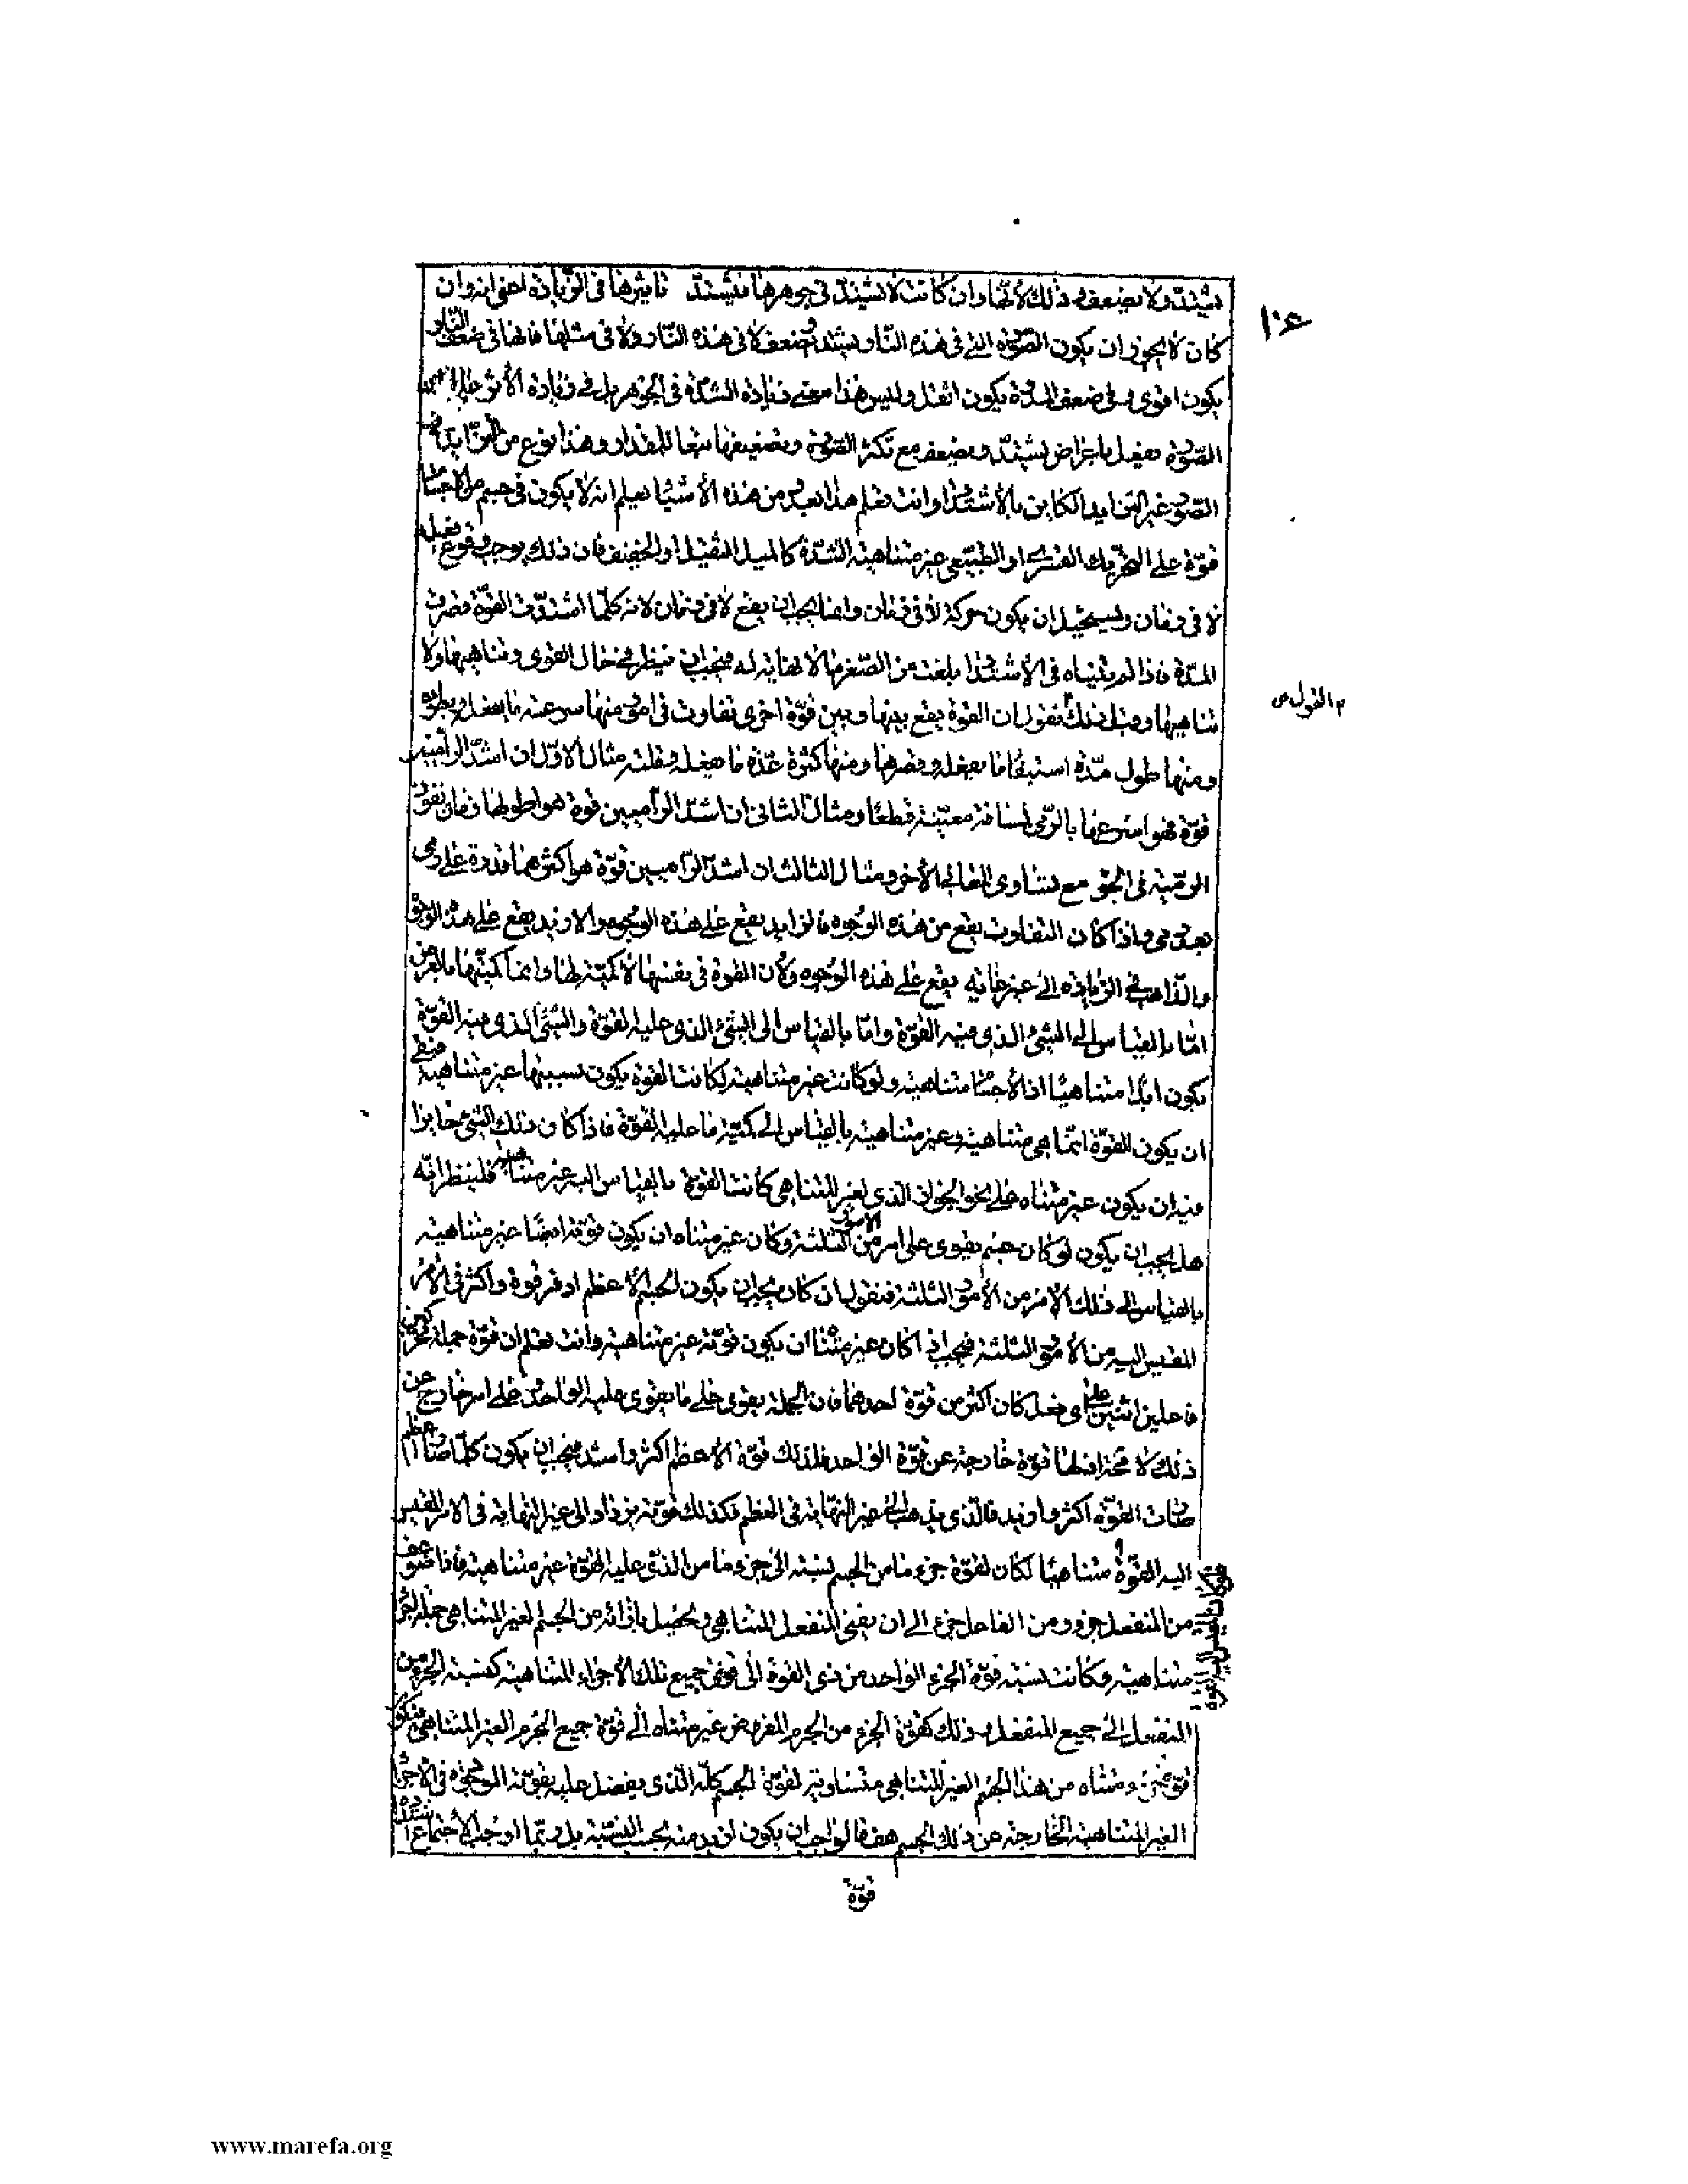 ١٠٤
يشتد ولا يضعف وذلك لانها وان كانت لا تشتد فى جوهرها فتشتد تاثيرها فى الزيادة اعنى انه وان
كان لا يجوز ان يكون الصورة التى فى هذه النار يشتد وتضعف لا فى هذه النار ولا فى مثلها فانها فى ضعف النار
يكون اقوى وفى ضعف المدة يكون انفذ وليس هذا معنى زيادة الشدة فى الجوهر بل فى زيادة الأثر
الصورة يفعل باعراض يشتد ويضعف مع تكثر الصورة وتضعيفها تبعا للمقدار وهذا نوع من التزايد فى
الصور غير التزايد الكاين بالأشتداد وانت تعلم هذا بعد ومن هذه الأشياء يعلم انه لا يكون فى جسم من الاجسام
قوة على التحريك القسرى او الطبيعى غير متناهية الشدة كالميل الثقيل او الخفيف فان ذلك يوجب وقوع فعله
لا فى زمان ويستحيل ان يكون حركة لا فى زمان وانما يجب ان يقع لا فى زمان لانه كلما اشتدت القوة قصرت
المدة فاذا لم يتناه فى الأشتداد بلغت من الصغر ما لا نهاية له فيجب ان ينظر فى حال القوى وتناهيها ولا
م القول ص
تناهيها وقبل ذلك نقول ان القوة يقع بينها وبين قوة اخرى تفاوت فى امور منها سرعة ما يفعل وبطؤه
ومنها طول مدة استبقاء ما يفعله وقصرها ومنها كثرة عدة ما يفعله وقلته مثال الاول ان اشد الراميين
قوة فهو اسرعها بالرمى لمسافة معينة قطعا ومثال الثانى ان اشد الراميين قوة هو اطولها زمان نفوذ
الرمية فى الجو مع تساوى المعانى الأخر ومثال الثالث ان اشد الراميين قوة هو اكثرهما قدرة على رمى
بعد رمى واذا كان التفاوت يقع من هذه الوجوه فالزايد يقع على هذه الوجوه والازيد يقع على هذه الوجوه
والذاهب فى الزيادة الى غير غاية يقع على هذه الوجوه ولأن القوة فى نفسها لا كمية لها وانما كميتها بالعرض
اما بالقياس الى الشئ الذى فيه القوة واما بالقياس الى الشئ الذى عليه القوة والشئ الذى فيه القوة
يكون ابدا متناهيا اذ الأجسام متناهية ولو كانت غير متناهية لكانت القوة يكون نسبتها غير متناهية فبقى
ان يكون القوة انما هى متناهية وغير متناهية بالقياس الى كمية ما عليه القوة فاذا كان ذلك الشئ جايزا
فيه ان يكون غير متناه على نحو الجواز الذى لغير المتناهى كانت القوة بالقياس اليه غير متناهية فلينظر انه
هل يجب ان يكون لو كان جسم يقوى على امر من الامور الثلثة وكان غير متناه ان يكون قوته ايضا غير متناهية
بالقياس الى ذلك الامر من الأمور الثلثة فنقول ان كان يجب ان يكون الجسم الأعظم اوفر قوة واكثر فى الأمر
المقيس اليه من الأمور الثلثة فيجب اذا كان غير متناه ان يكون قوته غير متناهية وانت تعلم ان قوة جملة محركين
فاعلين اثنين على اى فعل كان اكثر من قوة احدهما فان الجملة يقوى على ما يقوى عليه الواحد وعلى امر خارج عن
ذلك لا محة اذ لها قوة خارجة عن قوة الواحد فلذلك قوة الأعظم اكثر واشد فيجب ان يكون كلما صار اعظم
صارت القوة اكثر وازيد فالذى يذهب الى غير النهاية فى العظم فكذلك قوته يزداد الى غير النهاية فى الامر المقيس
اليه القوة متناهيا لكان لقوة جزء ما من الجسم نسبة الى جزء ما من الذى عليه القوة غير متناهية فاذا ضوعف
من المنفعل جزء ومن الفاعل جزء الى ان يفنى المنفعل المتناهى ويحصل بازائه من الجسم الغير المتناهى جملة اجزاء
متناهية وكانت نسبة قوة الجزء الواحد من ذى القوة الى قوى جميع تلك الأجزاء المتناهية كنسبة الجزء من
المنفعل الى جميع المنفعل وذلك كقوة الجزء من الجرم المفروض غير متناه الى قوة جميع الجرم الغير المتناهى فيكون
قوة جزء متناه من هذا الجرم الغير المتناهى متساوية لقوة الجسم كله الذى يفضل عليه بقوته الموجودة فى الأجزاء
الغير المتناهية الخارجة عن ذلك الجسم هف فالواجب ان يكون ازيد منه بحسب النسبة بل وربما اوجب الأجتماع اشتداد
قوة
www.marefa.org